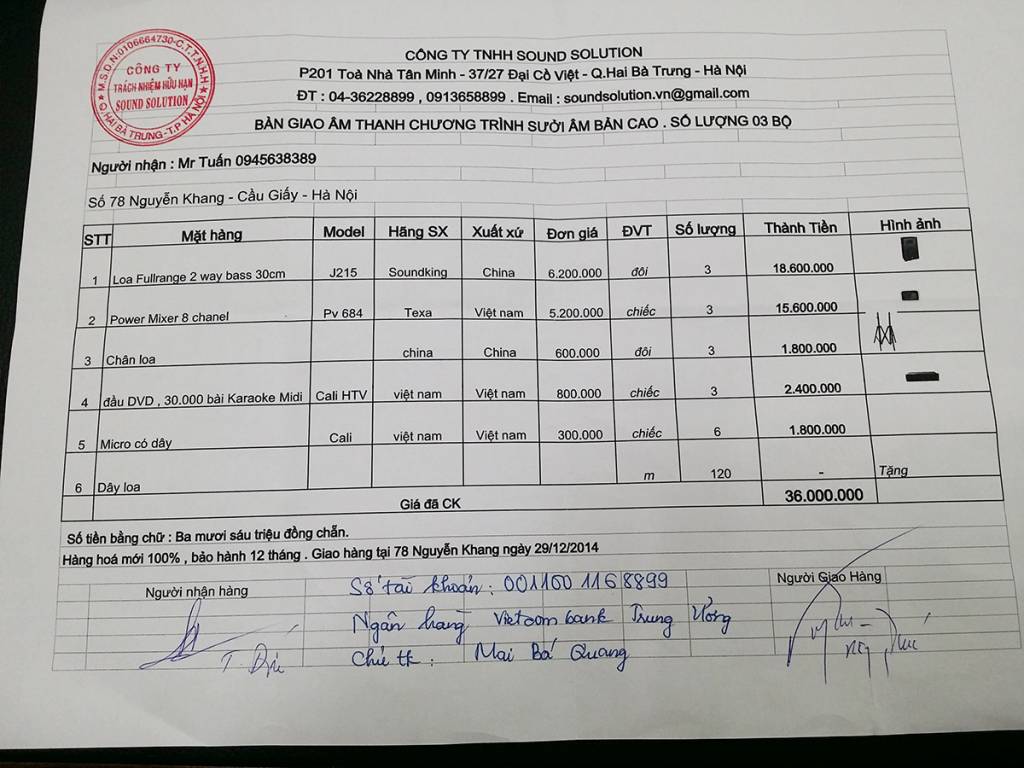 M.S.D.N:0106664730-C.T.T.N.H.H
CÔNG TY
TRÁCH NHIỆM HỮU HẠN
SOUND SOLUTION
Q.HAI BÀ TRƯNG-T.P HÀ NỘI
CÔNG TY TNHH SOUND SOLUTION
P201 Toà Nhà Tân Minh - 37/27 Đại Cồ Việt - Q.Hai Bà Trưng - Hà Nội
ĐT : 04-36228899 , 0913658899 . Email : soundsolution.vn@gmail.com
BÀN GIAO ÂM THANH CHƯƠNG TRÌNH SƯỞI ẤM BẢN CAO . SỐ LƯỢNG 03 BỘ
Người nhận : Mr Tuấn 0945638389
Số 78 Nguyễn Khang - Cầu Giấy - Hà Nội
STT Mặt hàng Model Hãng SX Xuất xứ Đơn giá ĐVT Số lượng Thành Tiền Hình ảnh
1 Loa Fullrange 2 way bass 30cm J215 Soundking China 6.200.000 đôi 3 18.600.000
2 Power Mixer 8 chanel Pv 684 Texa Việt nam 5.200.000 chiếc 3 15.600.000
3 Chân loa china China 600.000 đôi 3 1.800.000
4 đầu DVD , 30.000 bài Karaoke Midi Cali HTV việt nam Việt nam 800.000 chiếc 3 2.400.000
5 Micro có dây Cali việt nam Việt nam 300.000 chiếc 6 1.800.000
6 Dây loa m 120 - Tặng
Giá đã CK 36.000.000
Số tiền bằng chữ : Ba mươi sáu triệu đồng chẵn.
Hàng hoá mới 100% , bảo hành 12 tháng . Giao hàng tại 78 Nguyễn Khang ngày 29/12/2014
Người nhận hàng Người Giao Hàng
Số tài khoản : 0011001168899
Ngân hàng Vietcombank Trung Ương
Chủ tk : Mai Bá Quang